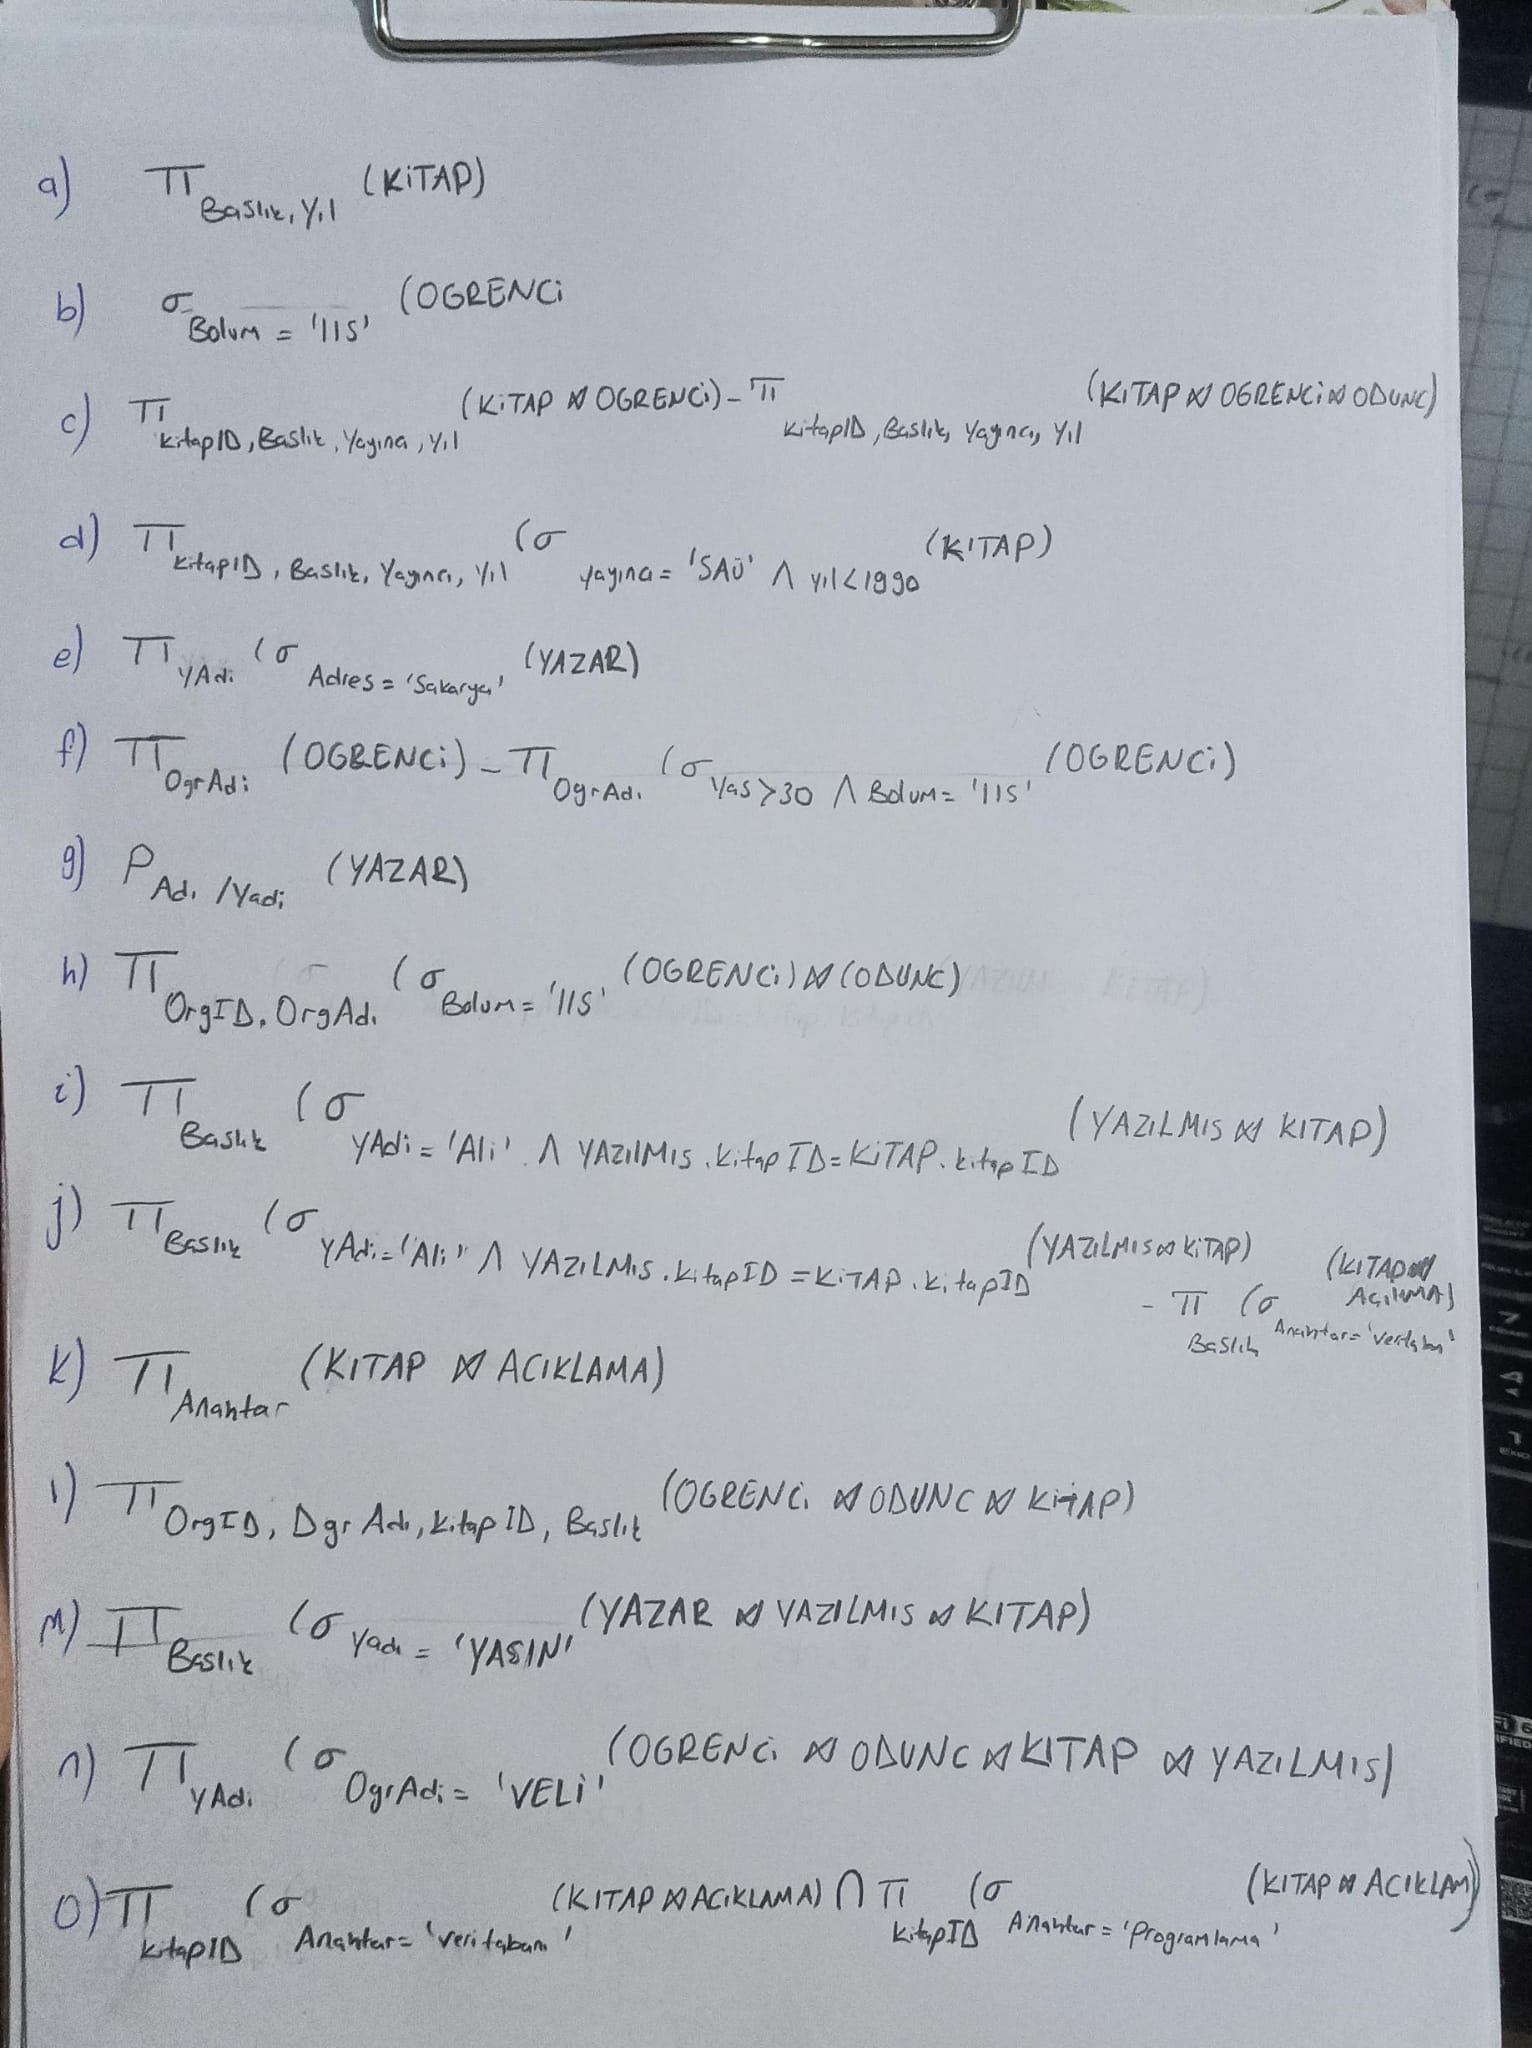 a) π Baslık, Yıl (KİTAP)
b) σ Bolum = 'IIS' (OGRENCi
c) π kitapID, Baslık, Yayıncı, Yıl (KİTAP ⋈ OGRENCi) - π kitapID, Baslık, Yayıncı, Yıl (KiTAP ⋈ OGRENCi ⋈ ODUNC)
d) π kitapID, Baslık, Yayıncı, Yıl (σ yayıncı = 'SAÜ' ∧ yıl < 1990 (KITAP)
e) π YAdı (σ Adres = 'Sakarya' (YAZAR)
f) π OgrAdi (OGRENCi) - π OgrAdı (σ Yas > 30 ∧ Bolum = 'IIS' (OGRENCi)
g) ρ Adı / Yadi (YAZAR)
h) π OrgID, OrgAdı (σ Bolum = 'IIS' (OGRENCi) ⋈ (ODUNC)
i) π Baslık (σ YAdi = 'Ali' ∧ YAZILMIS.kitapID = KiTAP.kitapID (YAZILMIS ⋈ KITAP)
j) π Baslık (σ YAdi = 'Ali' ∧ YAZILMIS.kitapID = KiTAP.kitapID (YAZILMIS ⋈ KiTAP)
- π Baslık (σ Anahtar = 'veritabanı' (KiTAP ⋈
k) π Anahtar (KITAP ⋈ ACIKLAMA)
l) π OrgID, OgrAdı, kitapID, Baslık (OGRENCi ⋈ ODUNC ⋈ KİTAP)
m) π Baslık (σ Yadı = 'YASIN' (YAZAR ⋈ YAZILMIS ⋈ KITAP)
n) π YAdı (σ OgrAdi = 'VELİ' (OGRENCi ⋈ ODUNC ⋈ KITAP ⋈ YAZILMIS)
o) π kitapID (σ Anahtar = 'veritabanı' (KITAP ⋈ ACIKLAMA) ∩ π kitapID (σ Anahtar = 'Programlama' (KITAP ⋈ ACIKLAM)